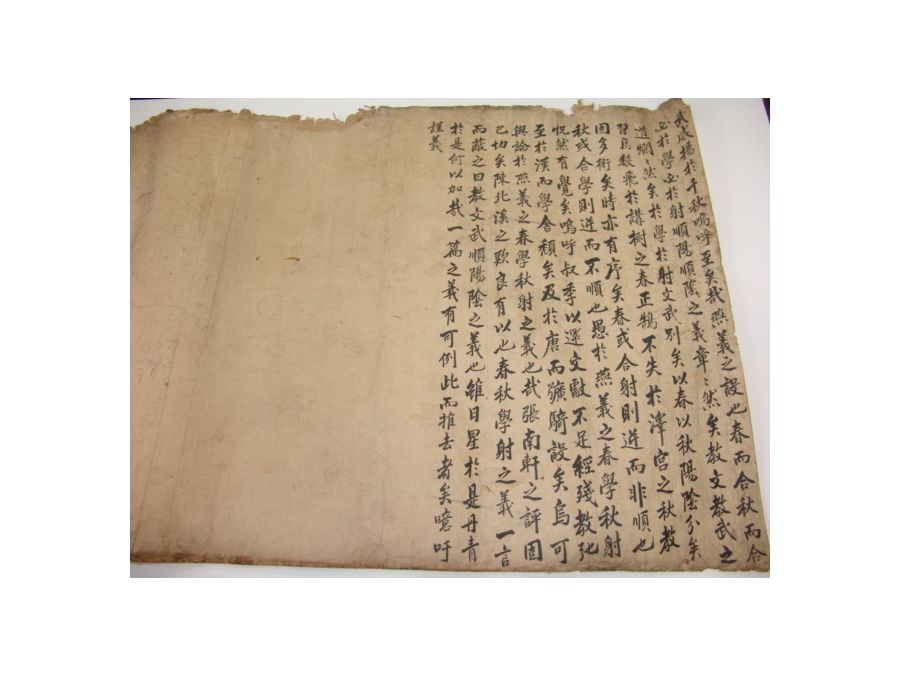 武成揚於千秋嗚呼至矣哉燕義之設也春而合秋而合
必於學必於射順陽順陰之義章〻然矣敎文敎武之
道爛〻然矣於學於射文武別矣以春以秋陽陰分矣
習鳥數飛於講樹之春正鵠不失於澤宮之秋敎
固多術矣時亦有序矣春或合射則逆而非順也
秋或合學則逆而不順也愚於燕義之春學秋射
怳然有覺矣嗚呼叔季以還文獻不足經殘敎弛
至於漢而學舍頹矣及於唐而彍騎設矣烏可
與論於燕義之春學秋射之義也哉張南軒之評固
已切矣陳北溪之歎良有以也春秋學射之義一言
而蔽之曰敎文武順陽陰之義也雖日星於是丹靑
於是何以加哉一篇之義有可例此而推去者矣噫吁
謹義